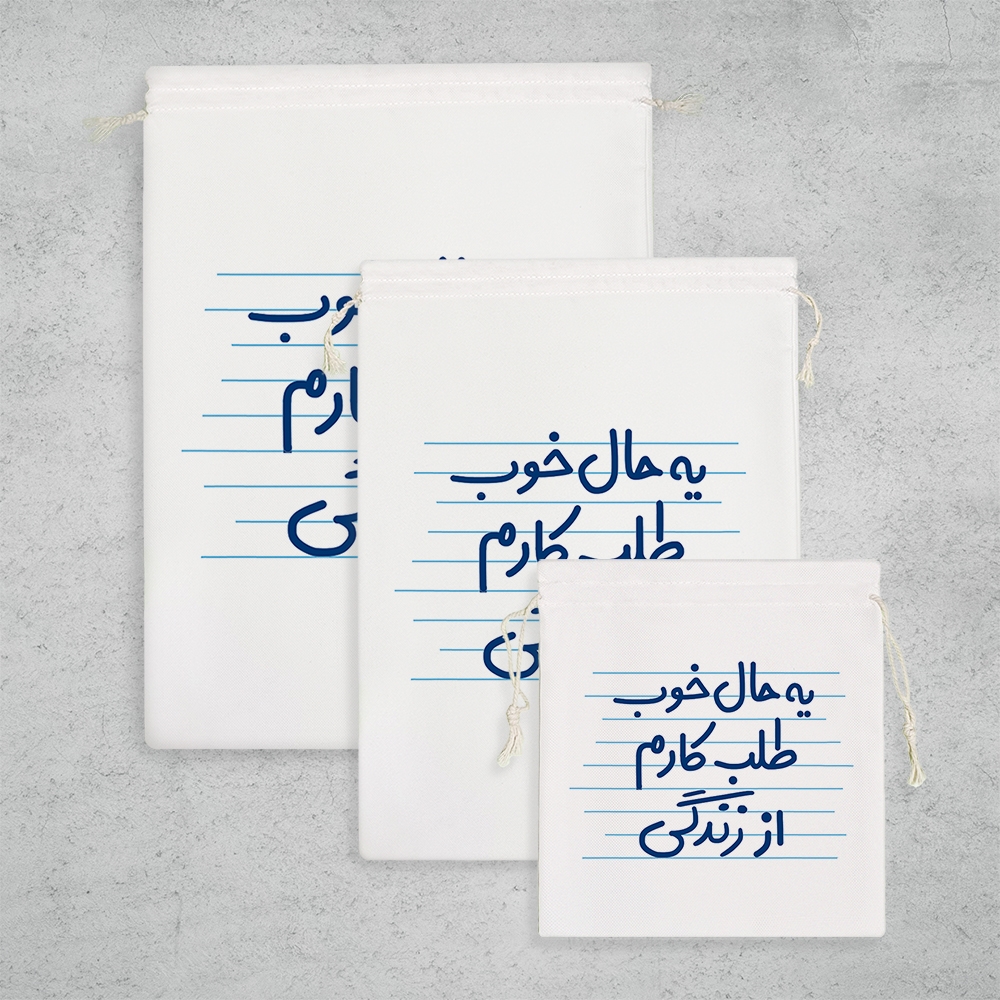 وب
ارم
ی
یه حال خوب
طلب کارم
ی
یه حال خوب
طلب کارم
از زندگی